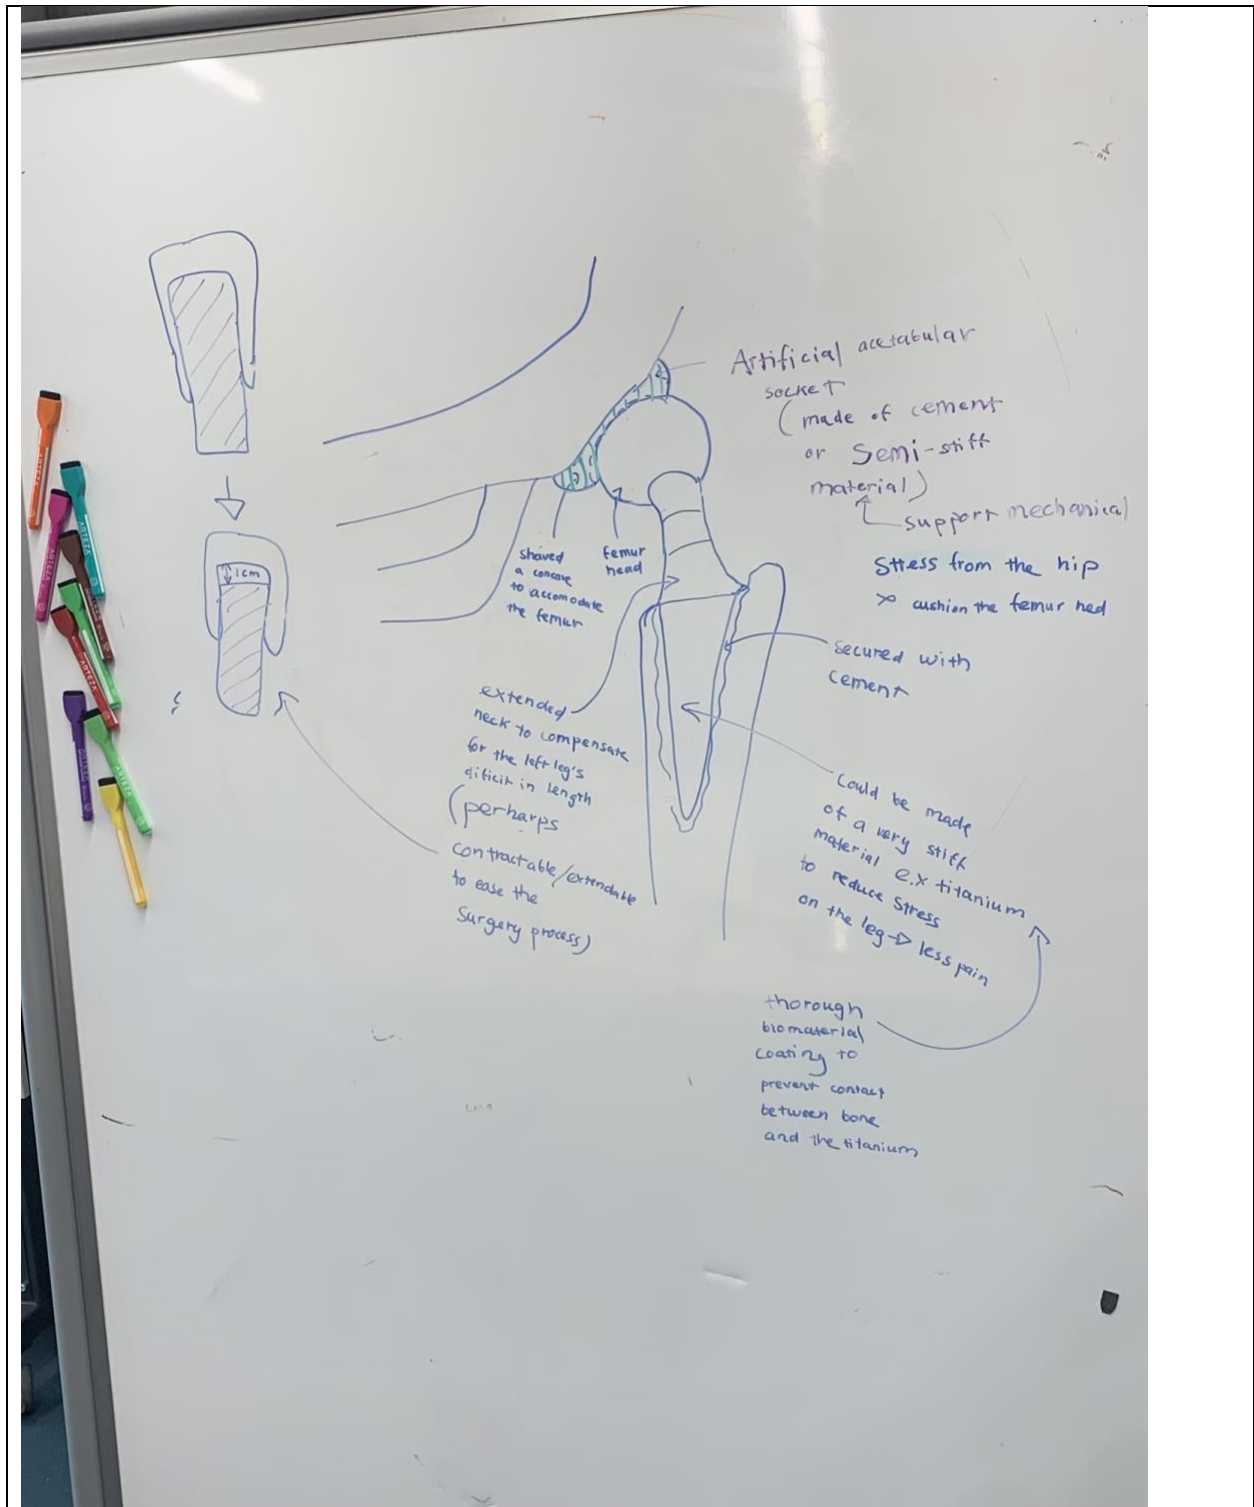 Artificial acetabular
socket
(made of cement
or Semi-stiff
material)
support mechanical
Stress from the hip
cushion the femur hed
shaved
a concave
to accomodate
the femur
femur
head
secured with
cement
1cm
extended
neck to compensate
for the left leg's
dificit in length
(perharps
contractable/extendable
to ease the
surgery process)
Could be made
of a very stiff
material e.x titanium
to reduce stress
on the leg → less pain
thorough
biomaterial
coating to
prevent contact
between bone
and the titanium
ARTEZA
ARTEZA
ARTEZA